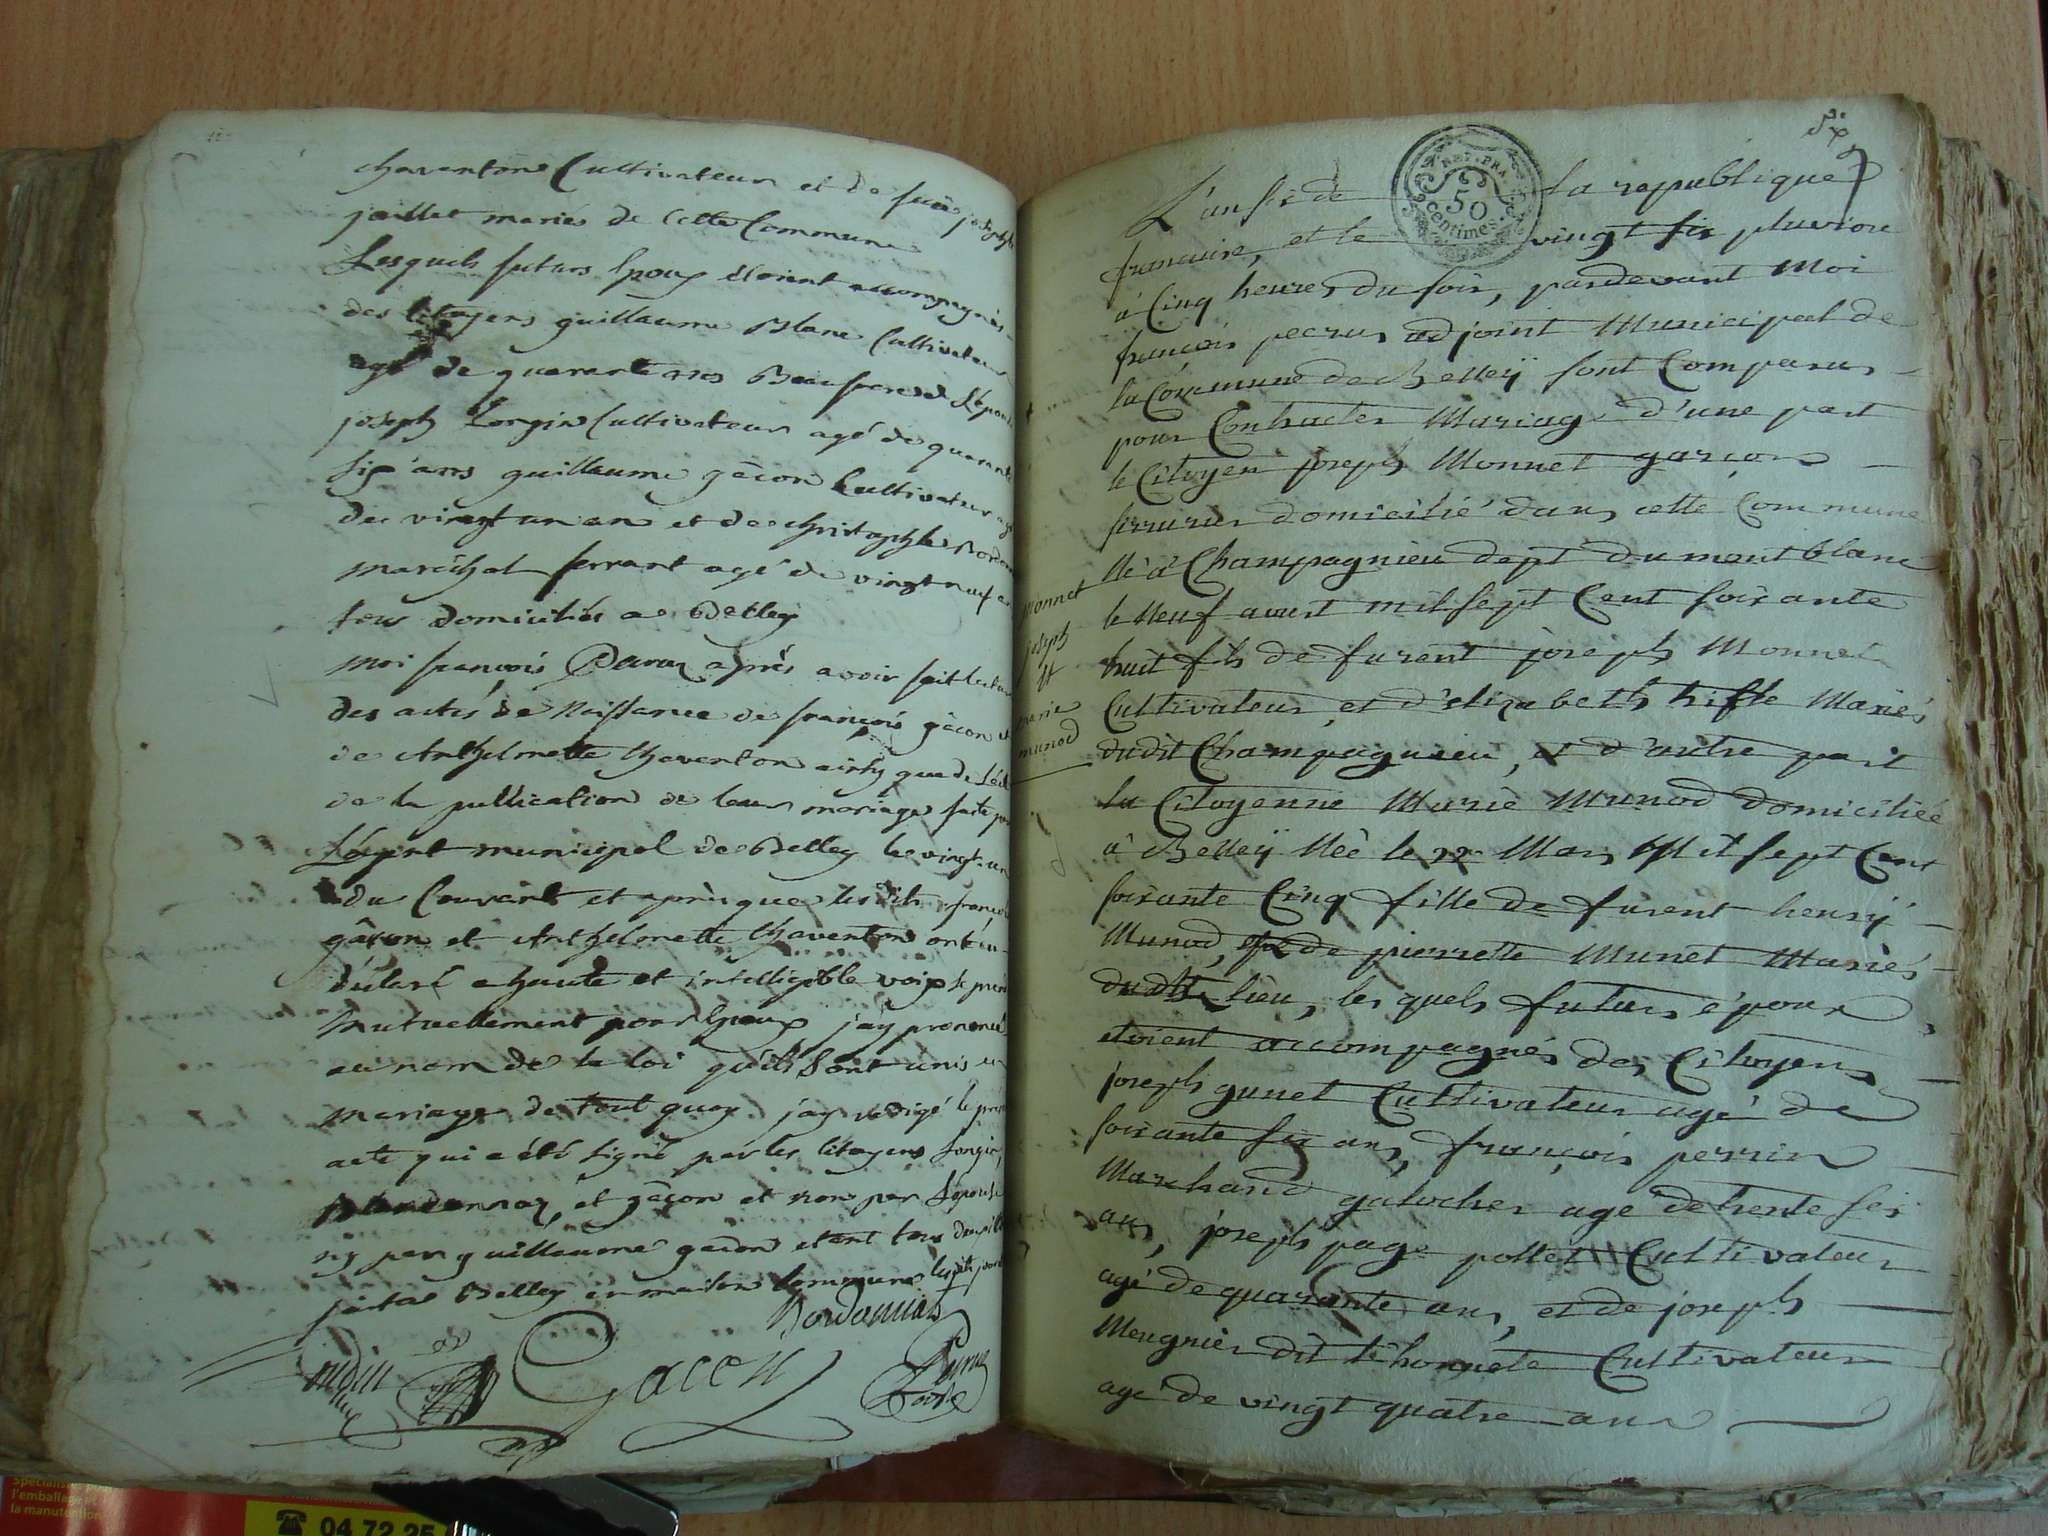 chaventon Cultivateur et de feüe josephte
jaillet mariés de Cette Commune
Lesquels futurs Epoux étoient accompagnés
des Citoyens guillaume Blanc Cultivateur
agé de quarante ans Beaufrere de L'épou
joseph Longin Cultivateur agé de quarante
six ans guillaume gâcon Cultivateur agé
de vingt un an et de christophle Bordon
maréchal ferrant agé de vingt neuf an
tous domiciliés a Belley
moi françois Peruz après avoir fait lectur
des actes de Naissance de françois gâcon et
de Anthelmette Chaventon ainsy que de L'éd
de la publication de leur mariage faite par
L'agent municipal de Belley le vingt un
du Courant et après que lesdits françois
gâcon et Anthelmette Chaventon ont eu
déclaré a haute et intelligible voix se prend
mutuellement pour Epoux j'ay prononcé
au nom de la loi qu'ils Sont unis en
mariage de tout quoy j'ay redigé le pres
acte qui a été signé par les Citoyens Longin,
Bourdonnay, et gâcon et non par L'épouse
ny par guillaume gacon etant tous deux ill
fait a Belley en maison Commune lesdits jour
Bordonnat
Gacon
Peruz
L'an six de la republique
francaise, et le vingt six pluviose
à Cinq heures du soir, pardevant Moi
françois peruz adjoint Municipal de
la Commune de Belleÿ sont Comparus
pour Contracter Mariage d'une part
le Citoyen joseph Monnet garçon
serrurier domicilié dans cette Commune
Né à Champagnieu dept du mont blanc
le Neuf aoust mil sept Cent soixante
huit fils de furent joseph Monnet
Cultivateur, et d'elizabeth Mariés
dudit Champagnieu, et d'autre part
La Citoyenne Marie Munod domiciliée
à Belleÿ Née le 22 Mars Mil sept Cent
soixante Cinq fille de furent henrÿ
Munod, et de pierrette Munet Mariés
dudit lieu, les quels futurs époux
etoient accompagnés des Citoyens
joseph gunet Cultivateur agé de
soixante six ans, françois perrin
Marchand galocher agé de trente six
ans, joseph page pollet Cultivateur
agé de quarante ans, et de joseph
Meugnier dit l'honnête Cultivateur
agé de vingt quatre ans
monnet
joseph
et
marie
munod
REP. FRA.
50
centimes
Spécialiste
l'emballage et
la manutention
04 72 25